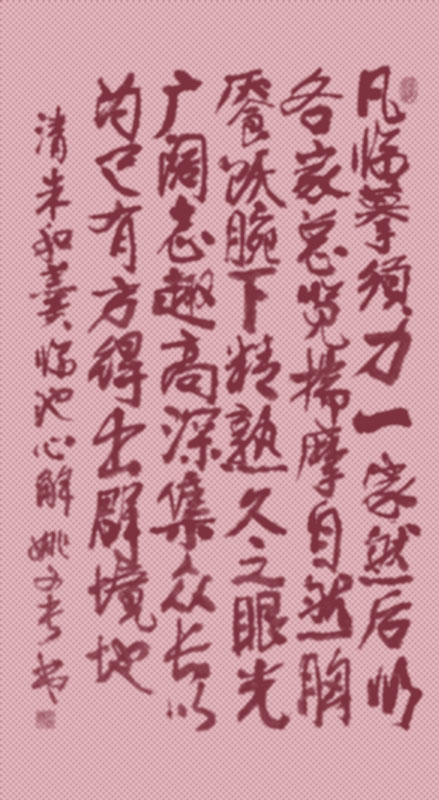 凡临摹须力一家然后以
各家总览揣摩自然胸
餍跃腕下精熟久之眼光
广阔志趣高深集众长以
为己有方得出群境地
清朱和羹临池心解 姚文书